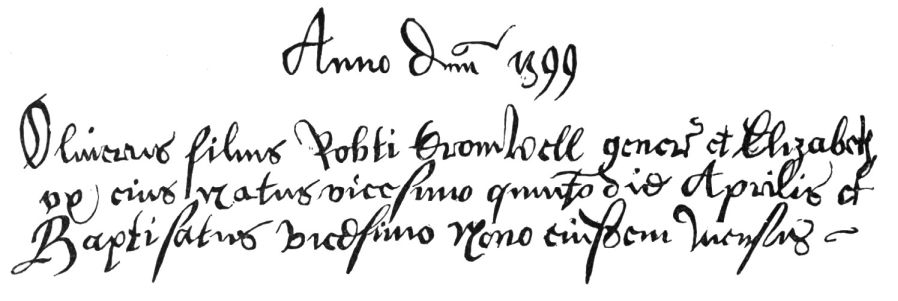 Anno Dm̄ 1599
Oliverus filius Robti Cromwell gener et Elizabeth
ux eius natus vicesimo quinto die Aprilis et
Baptisatus vicesimo Nono eiusdem mensis